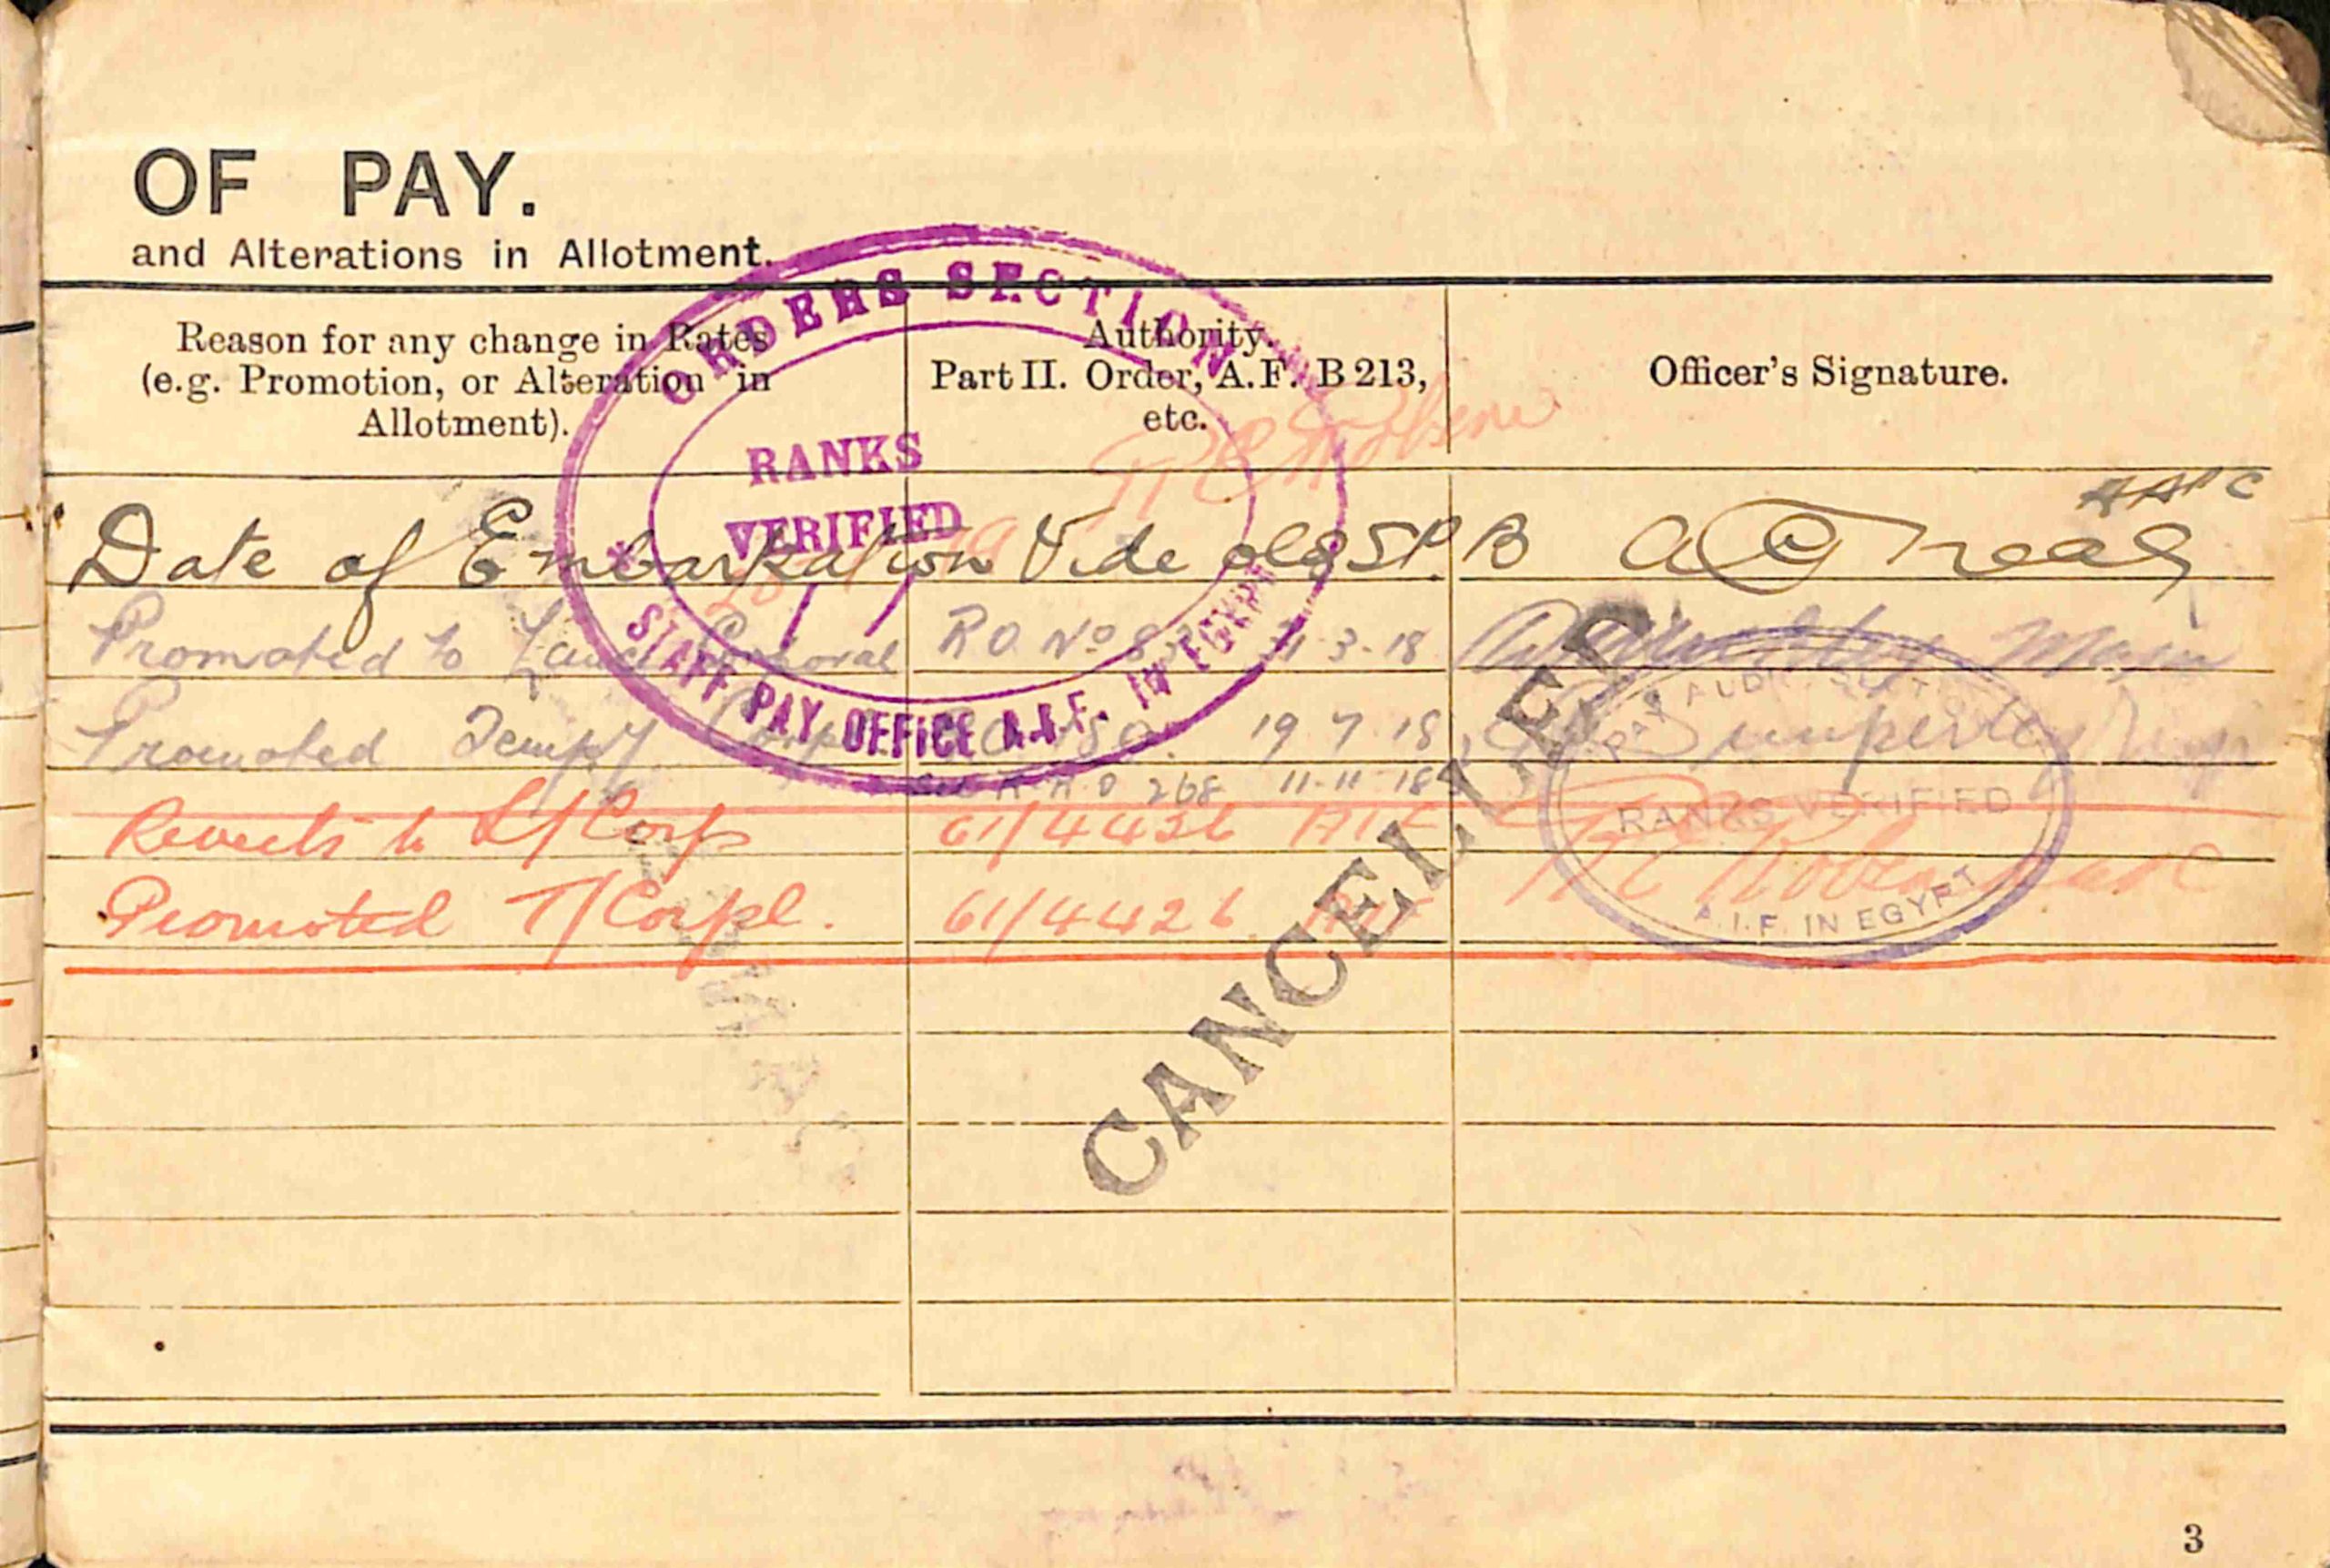 OF PAY.
and Alterations in Allotment.
Reason for any change in Rates
(e.g. Promotion, or Alteration in
Allotment).
Authority.
Part II. Order, A.F. B 213,
etc.
Officer's Signature.
ORDERS SECTION
RANKS
VERIFIED
STAFF PAY OFFICE A.I.F. IN EGYPT
Date of Embarkation Vide old S.P.B
Promoted to Lance Corporal R.O. No 31.3.18
Promoted Tempy Corpl 19.7.18
268 11-11-18
Reverts to L/Corp 61/4426
Promoted T/Corpl. 61/4426
PAY AUDIT SECTION
RANKS VERIFIED
A.I.F. IN EGYPT
CANCELLED
3